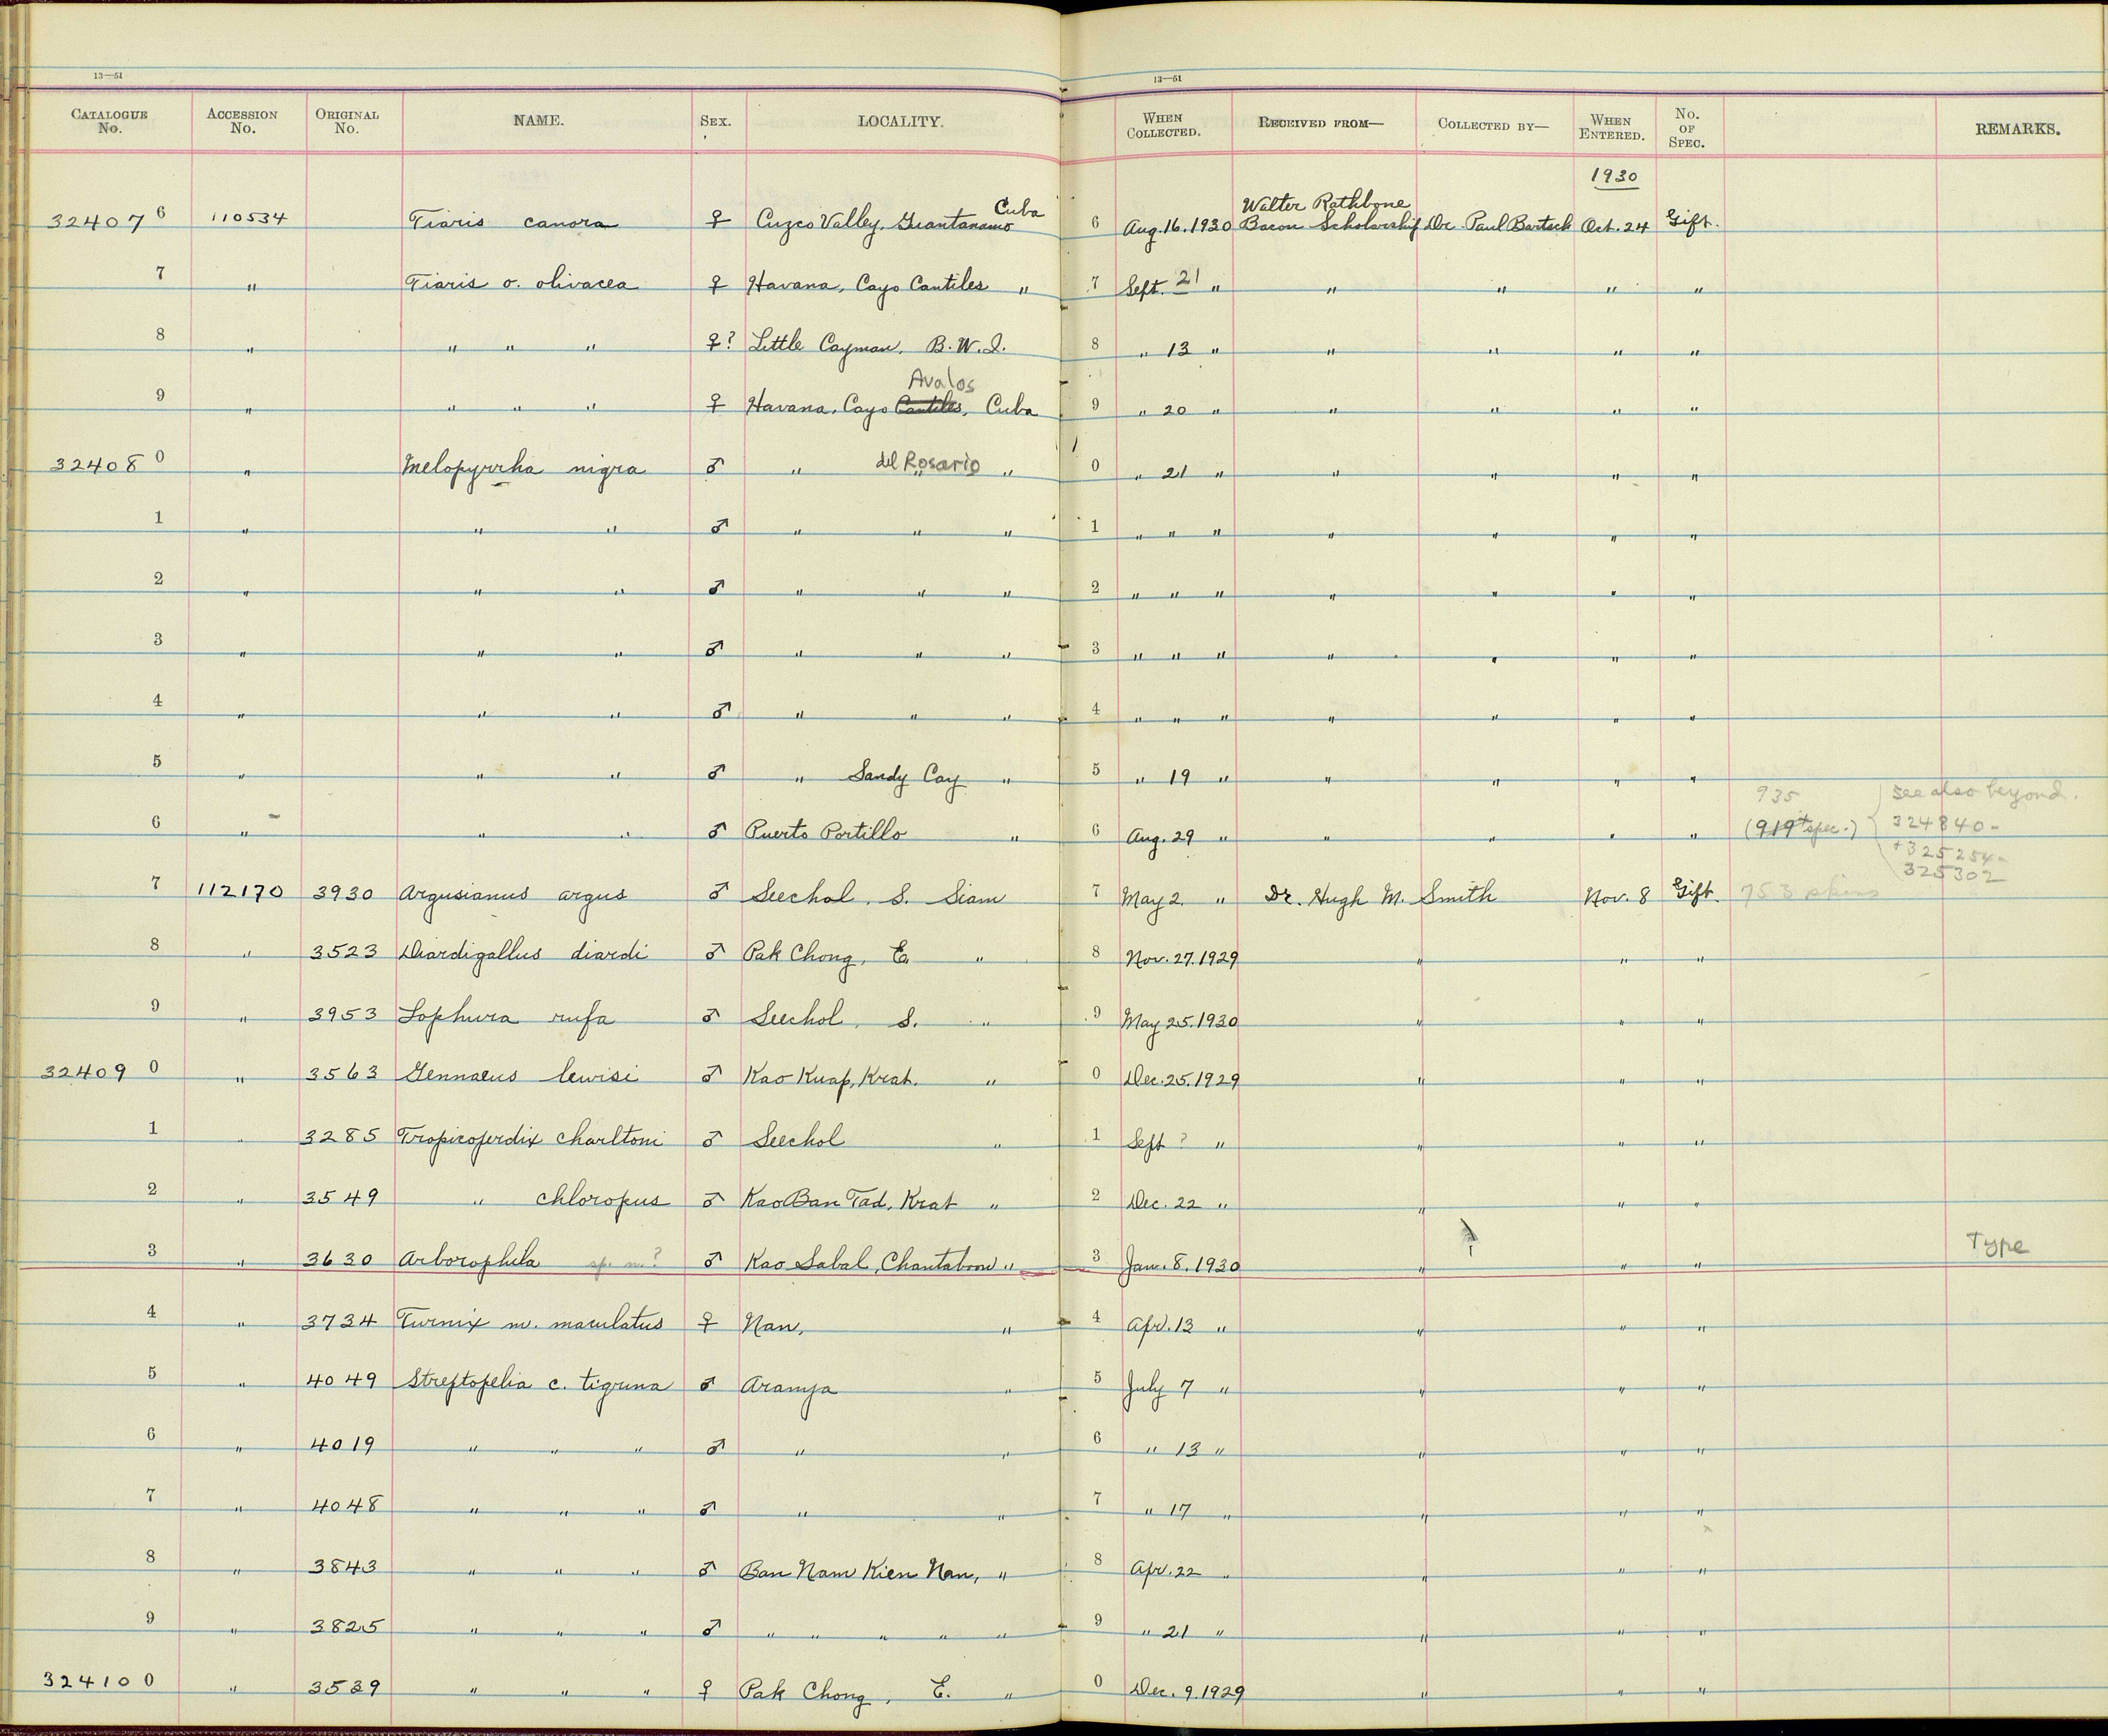 13—51 13—51
CATALOGUE No. ACCESSION No. ORIGINAL No. NAME. SEX. LOCALITY. WHEN COLLECTED. RECEIVED FROM— COLLECTED BY— WHEN ENTERED. No. OF SPEC. REMARKS.
1930
324076 110534 Tiaris canora ♀ Cuzco Valley, Guantanamo Cuba 6 Aug. 16. 1930 Walter Rathbone Bacon Scholarship Dr. Paul Bartsch Oct. 24 Gift.
7 " Tiaris o. olivacea ♀ Havana, Cayo Cantiles " 7 Sept. 21 " " " " "
8 " " " " ♀? Little Cayman, B.W.I. 8 " 13 " " " " "
9 " " " " ♀ Havana, Cayo Cantiles, Avalos Cuba 9 " 20 " " " " "
324080 " Melopyrrha nigra ♂ " del Rosario " 0 " 21 " " " " "
1 " " " ♂ " " " 1 " " " " " " "
2 " " " ♂ " " " 2 " " " " " " "
3 " " " ♂ " " " 3 " " " " " " "
4 " " " ♂ " " " 4 " " " " " " "
5 " " " ♂ " Sandy Cay " 5 " 19 " " " " "
935 see also beyond.
6 " " " ♂ Puerto Portillo " 6 Aug. 29 " " " " " (919+ spec.) 324840-
+325254-
325302
7 112170 3930 Argusianus argus ♂ Seechol, S. Siam 7 May 2. " Dr. Hugh M. Smith Nov. 8 Gift. 753 skins
8 " 3523 Diardigallus diardi ♂ Pak Chong, E. " 8 Nov. 27. 1929 " " "
9 " 3953 Lophura rufa ♂ Seechol, S. " 9 May 25. 1930 " " "
324090 " 3563 Gennaeus lewisi ♂ Kao Kuap, Krat. " 0 Dec. 25. 1929 " " "
1 " 3285 Tropicoperdix charltoni ♂ Seechol " 1 Sept ? " " " "
2 " 3549 " chloropus ♂ Kao Ban Tad, Krat " 2 Dec. 22 " " " "
3 " 3630 Arborophila sp. n.? ♂ Kao Sabal, Chantaboon " 3 Jan. 8. 1930 " " " Type
4 " 3734 Turnix m. maculatus ♀ Nan, " 4 Apr. 13 " " " "
5 " 4049 Streptopelia c. tigrina ♂ Aranya " 5 July 7 " " " "
6 " 4019 " " " ♂ " " 6 " 13 " " " "
7 " 4048 " " " ♂ " " 7 " 17 " " " "
8 " 3843 " " " ♂ Ban Nam Kien Nan, " 8 Apr. 22 " " " "
9 " 3825 " " " ♂ " " " " " 9 " 21 " " " "
324100 " 3539 " " " ♀ Pak Chong, E. " 0 Dec. 9. 1929 " " "